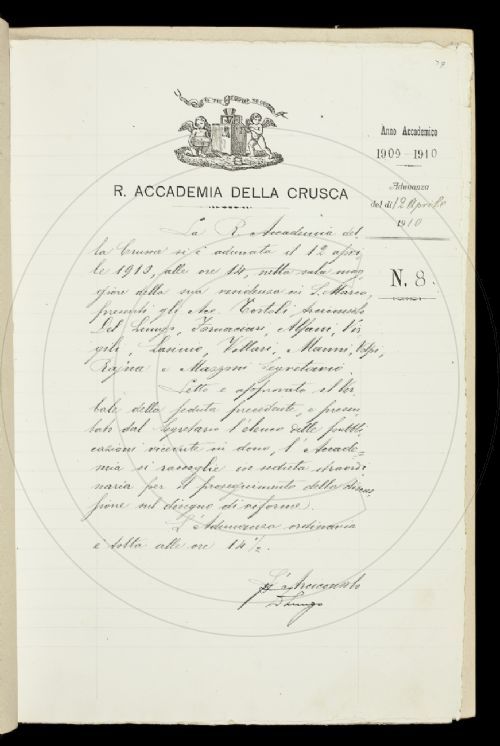 79
Anno Accademico
1909-1910
Adunanza
del dì 12 Aprile
1910
N. 8.
R. ACCADEMIA DELLA CRUSCA
La R. Accademia del-
la Crusca si è adunata il 12 apri-
le 1910, alle ore 14, nella sala mag-
giore della sua residenza in S. Marco,
presenti gli Acc. Tortoli Arciconsolo
Del Lungo, Fornaciari, Alfani, Vir-
gili, Lasinio, Villari, Manni, Volpi,
Rajna e Mazzoni Segretario.
Letto e approvato il Ver-
bale della seduta precedente, e presen-
tato dal Segretario l'elenco delle pubbli-
cazioni ricevute in dono, l'Accade-
mia si raccoglie in seduta straordi-
naria per il proseguimento della discus-
sione sul disegno di riforme.
L'Adunanza ordinaria
è tolta alle ore 14 1/2.
L'Arciconsolo